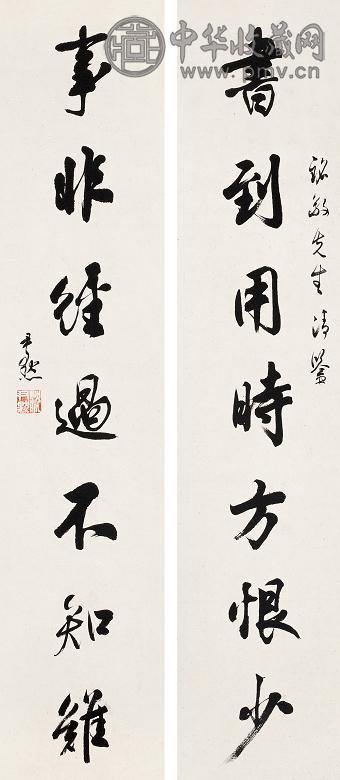 中华收藏网
www.pmv.cn
書到用時方恨少
事非經過不知難
先生清鑒
尹默